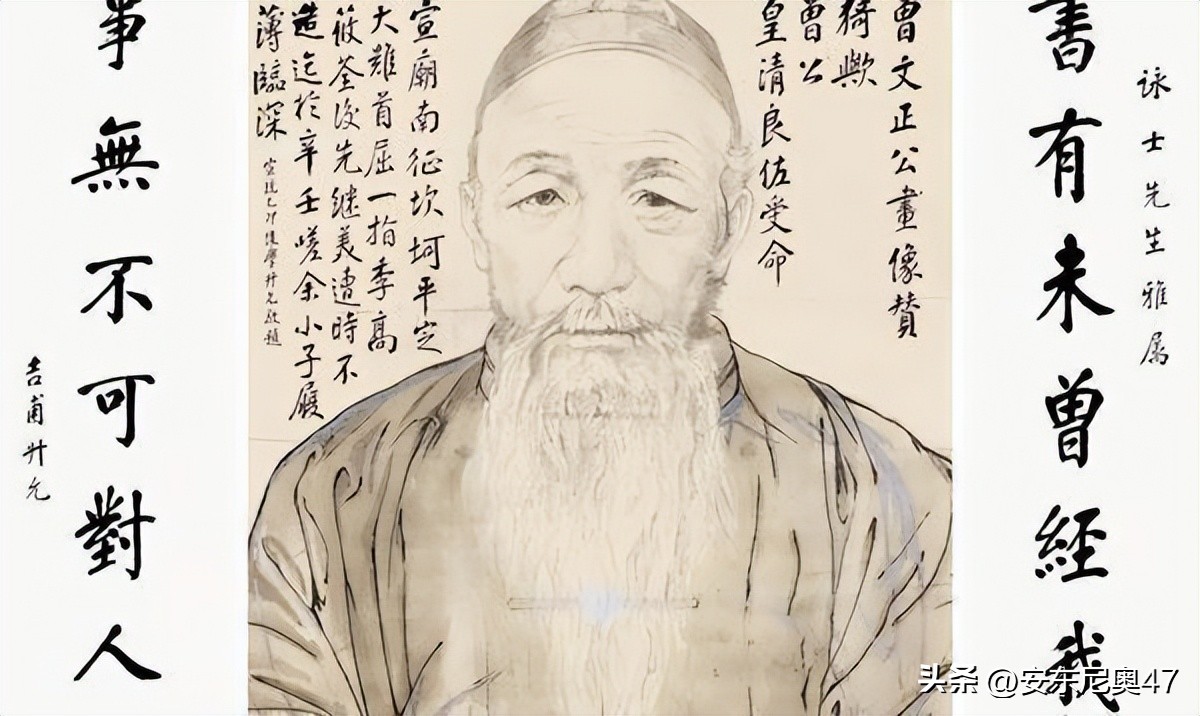 詠士先生雅屬
書有未曾經我
曾文正公畫像贊
猗歟
曾公
皇清良佐受命
宣廟南征坎坷平定
大難首屈一指季高
筱荃後先繼美遭時不
造迄於辛壬嗟余小子履
薄臨深
宣統乙卯後學升允敬題
事無不可對人
吉甫升允
头条 @安东尼奥47